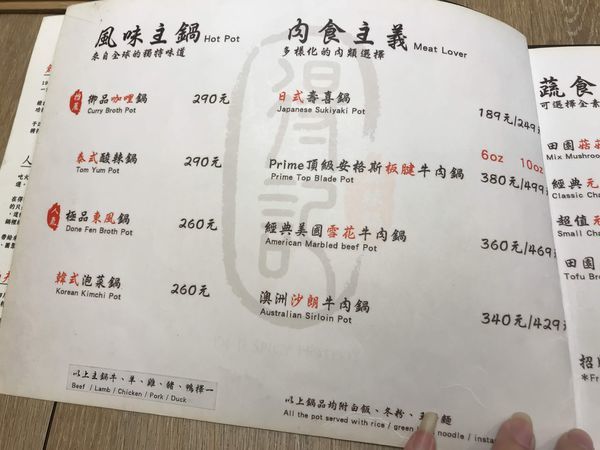 風味主鍋 Hot Pot
來自全球的獨特味道
御品咖哩鍋 290元
Curry Broth Pot
泰式酸辣鍋 290元
Tom Yum Pot
人氣 極品東風鍋 260元
Done Fen Broth Pot
韓式泡菜鍋 260元
Korean Kimchi Pot
以上主鍋牛、羊、雞、豬、鴨擇一
Beef / Lamb / Chicken / Pork / Duck
肉食主義 Meat Lover
多樣化的肉類選擇
日式壽喜鍋 189元/249
Japanese Sukiyaki Pot
6oz 10oz
Prime頂級安格斯板腱牛肉鍋 380元/499
Prime Top Blade Pot
經典美國雪花牛肉鍋 360元/469
American Marbled beef Pot
澳洲沙朗牛肉鍋 340元/429
Australian Sirloin Pot
以上鍋品均附白飯、冬粉、 麵
All the pot served with rice / green noodle / insta
蔬食
可選擇全素
田園菇菇
Mix Mushroo
經典元
Classic Char
超值元
Small Cha
田園
Tofu Bro
招
*Fr
得記